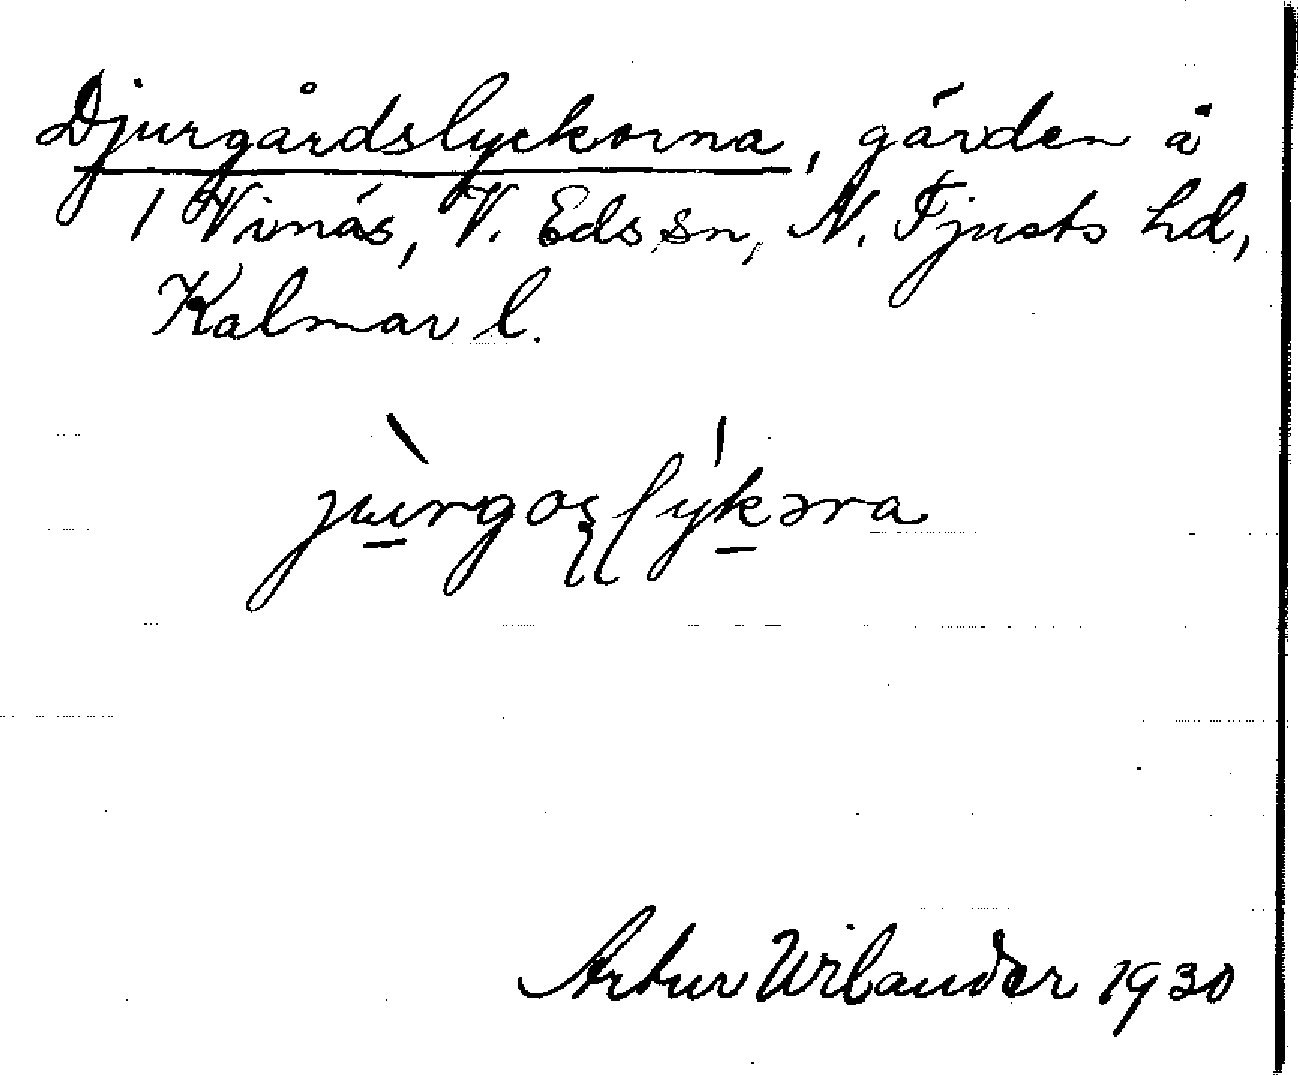 Djurgårdslyckorna, gärden å
1 Vinäs, V. Eds sn, N. Tjusts hd,
Kalmar l.
Artur Wilander 1930